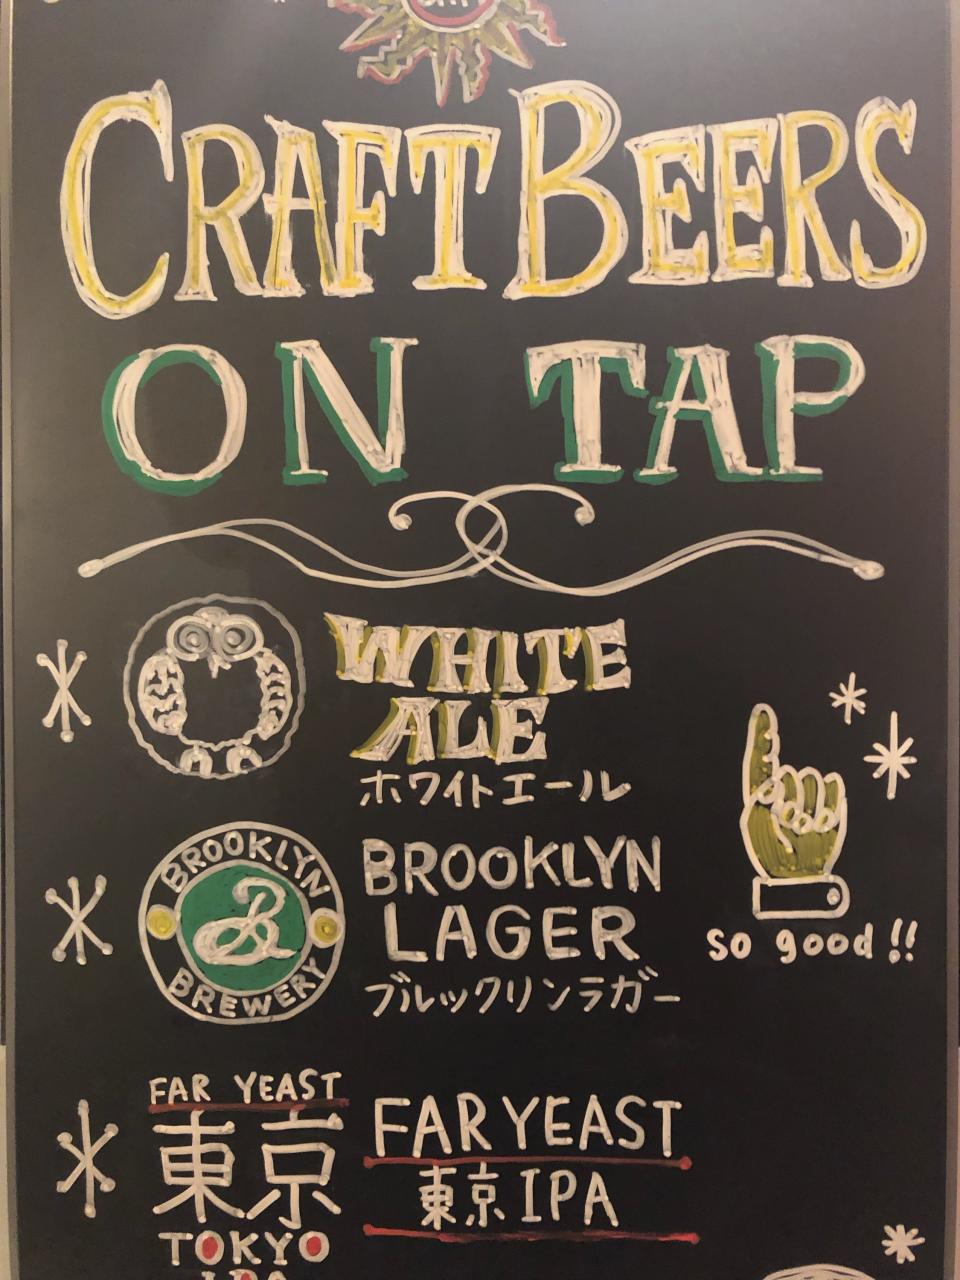 CRAFT BEERS
ON TAP
WHITE
ALE
ホワイトエール
BROOKLYN
B
BREWERY
BROOKLYN
LAGER
ブルックリンラガー
so good!!
FAR YEAST
東京
TOKYO
IPA
FAR YEAST
東京 IPA